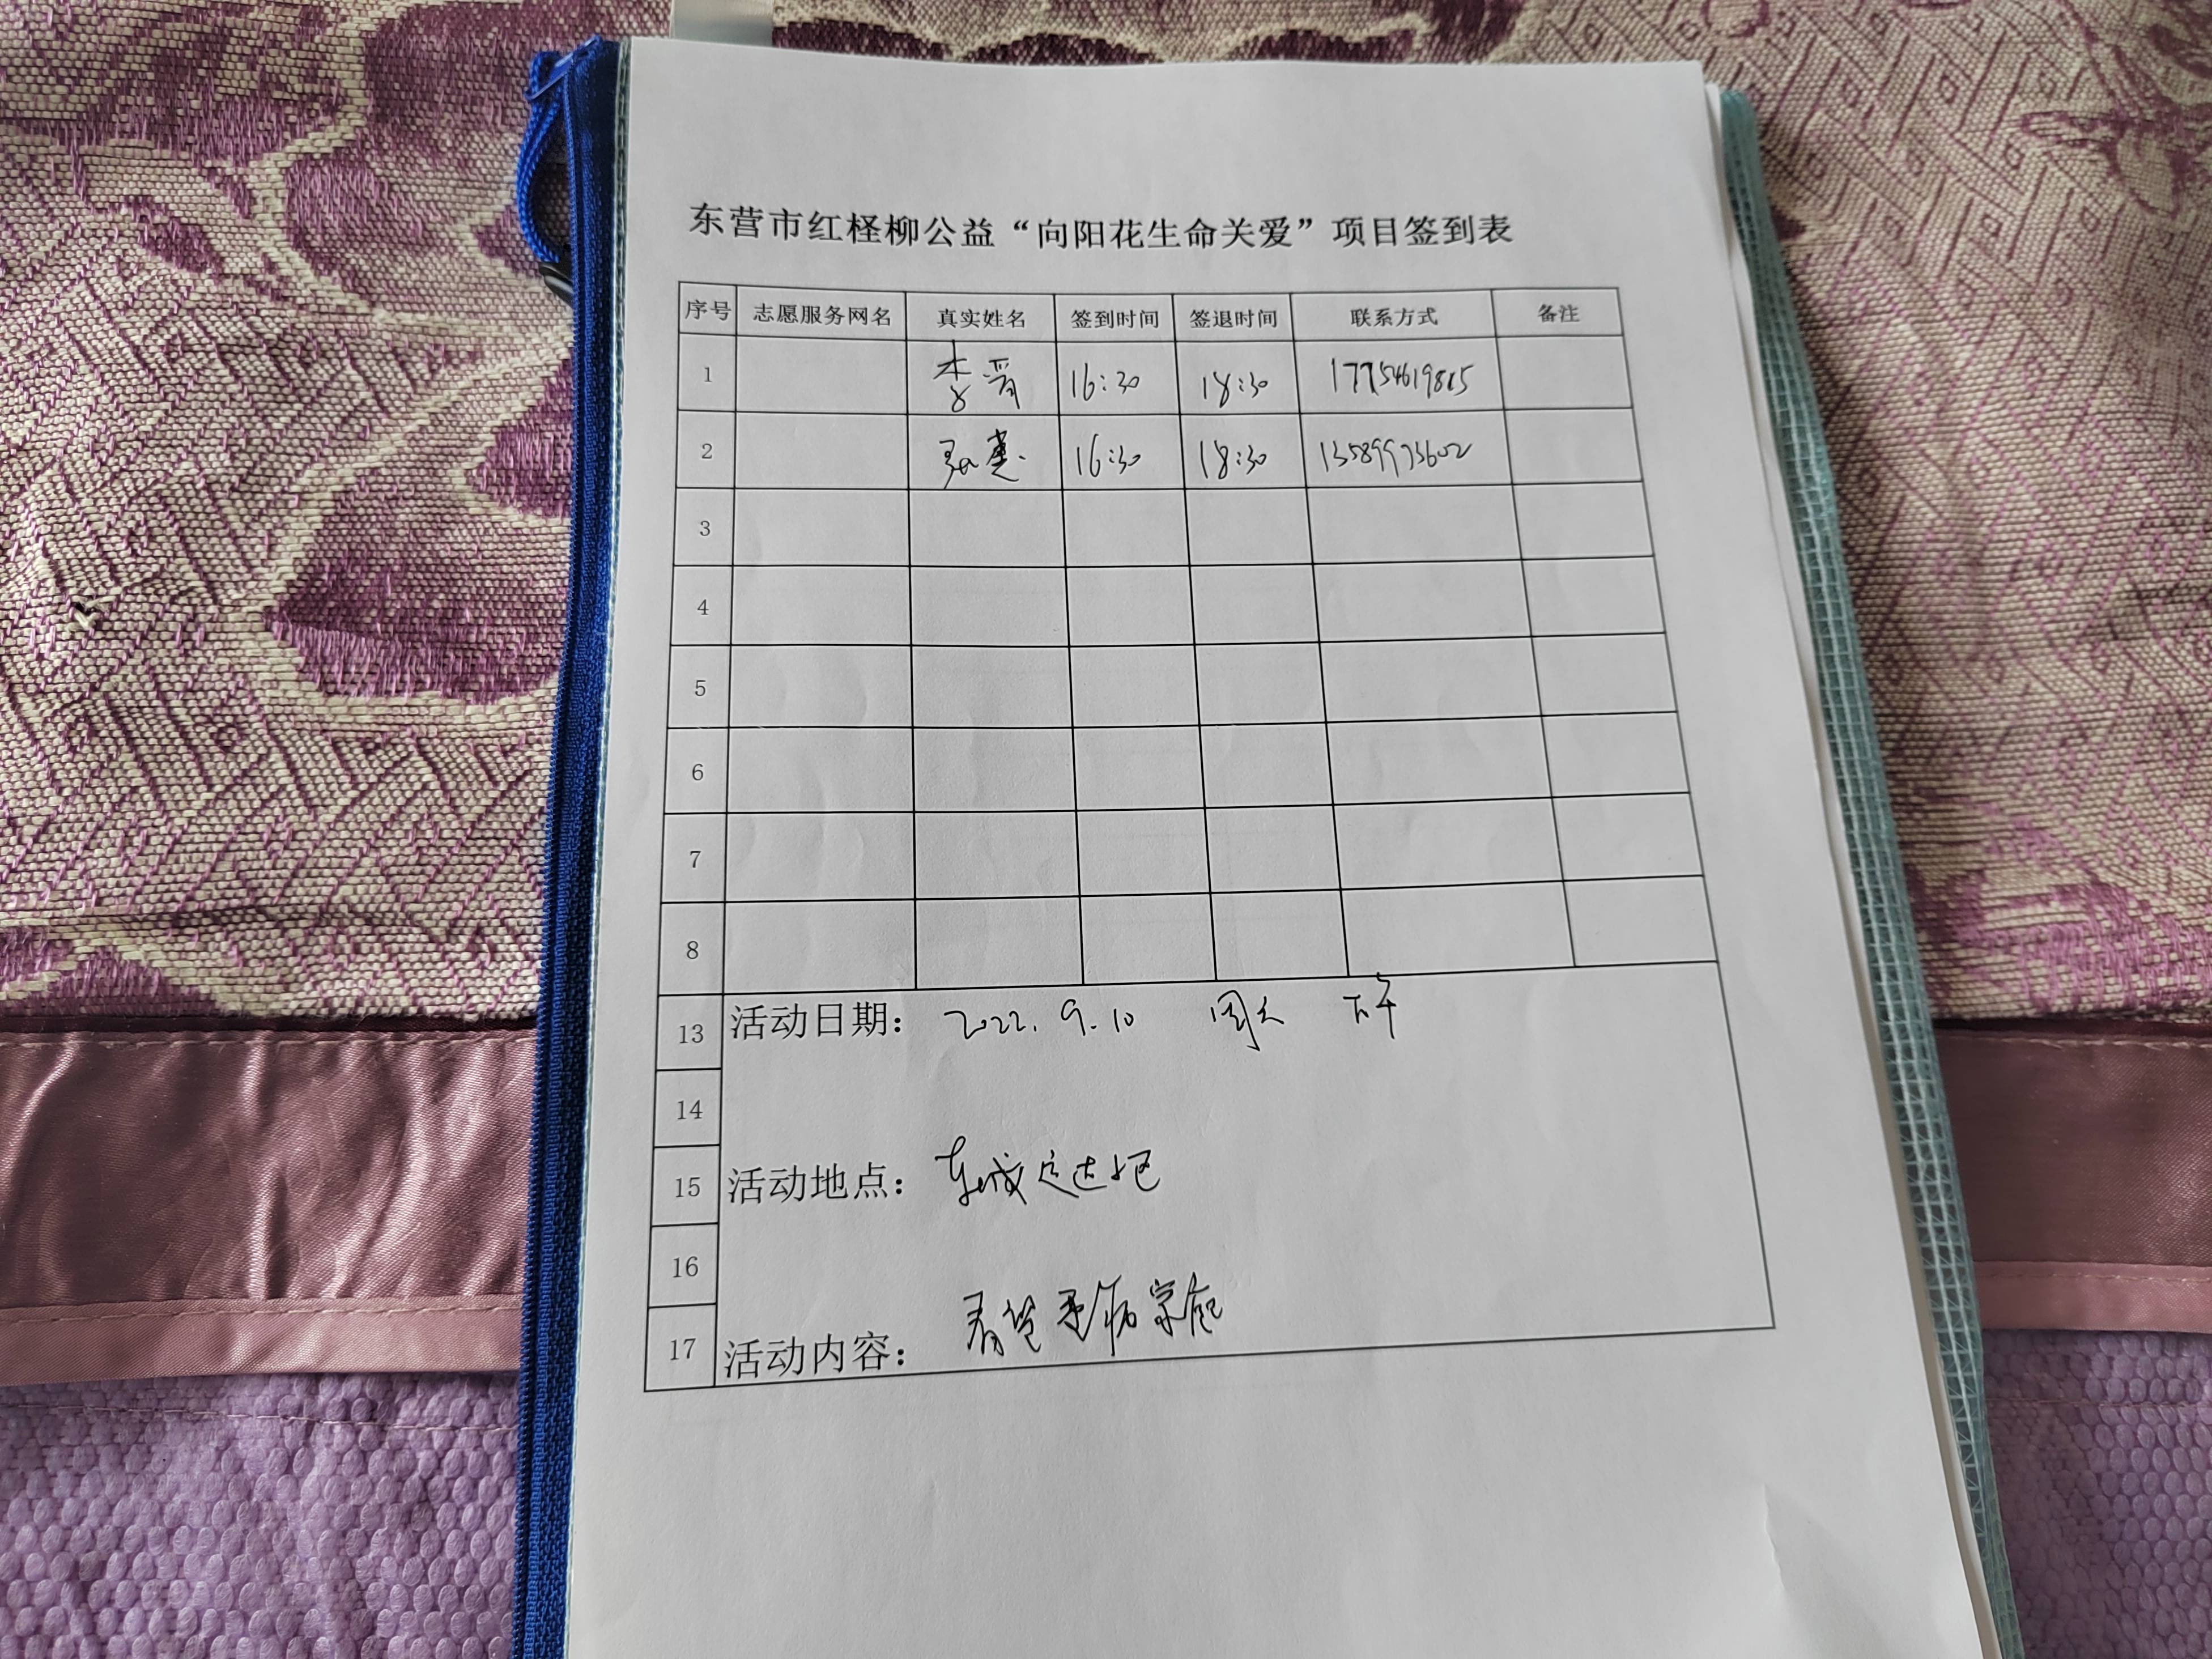 东营市红柽柳公益“向阳花生命关爱”项目签到表
序号 志愿服务网名 真实姓名 签到时间 签退时间 联系方式 备注
1 李 16:30 18:30
2 16:30 18:30 13589973602
3
4
5
6
7
8
13 活动日期: 2022.9.10 周六 下午
14
15 活动地点: 东城
16
17 活动内容: 看望重病家庭